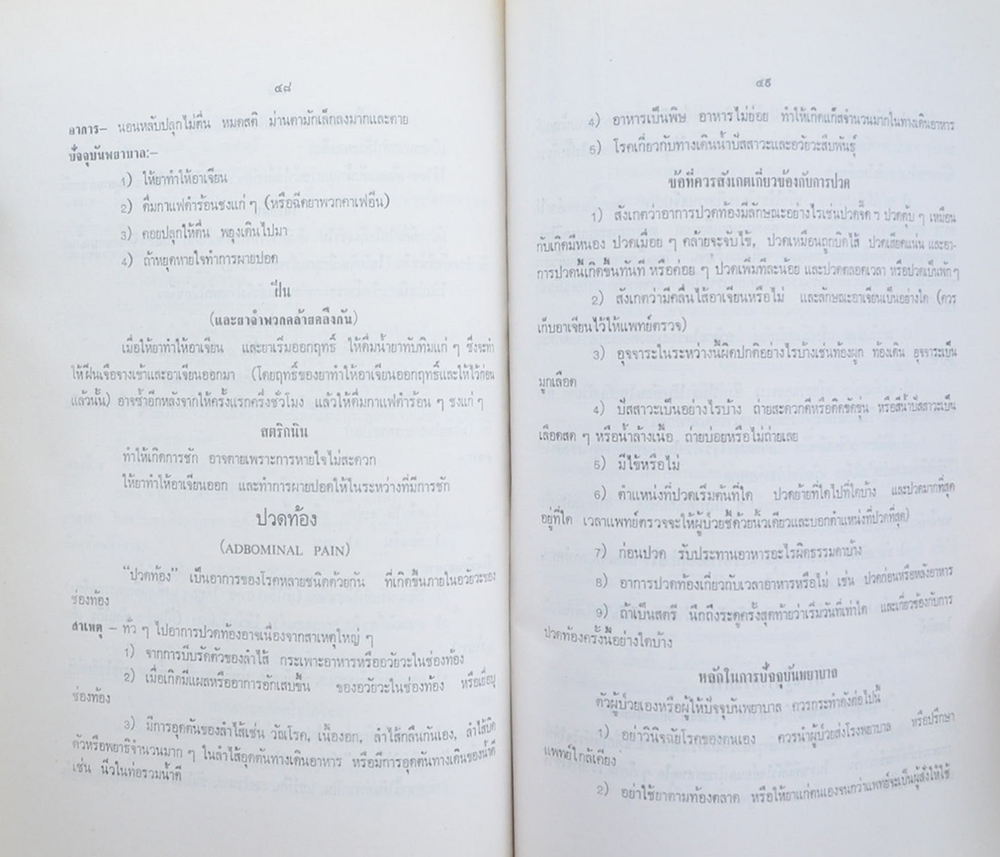 ๔๘
อาการ— นอนหลับปลุกไม่ตื่น หมดสติ ม่านตามักเล็กลงมากและตาย
ปัจจุบันพยาบาล:—
1) ให้ยาทำให้อาเจียน
2) ดื่มกาแฟดำร้อนชงแก่ ๆ (หรือฉีดยาพวกคาเฟอีน)
3) คอยปลุกให้ตื่น พยุงเดินไปมา
4) ถ้าหยุดหายใจทำการผายปอด
ฝิ่น
(และยาจำพวกคล้ายคลึงกัน)
เมื่อให้ยาทำให้อาเจียน และยาเริ่มออกฤทธิ์ ให้ดื่มน้ำยาทับทิมแก่ ๆ ซึ่งจะทำ
ให้ฝิ่นเจือจางเข้าและอาเจียนออกมา (โดยฤทธิ์ของยาทำให้อาเจียนออกฤทธิ์และให้ไว้ก่อน
แล้วนั้น) อาจซ้ำอีกหลังจากให้ครั้งแรกครึ่งชั่วโมง แล้วให้ดื่มกาแฟดำร้อน ๆ ชงแก่ ๆ
สตริกนิน
ทำให้เกิดการชัก อาจตายเพราะการหายใจไม่สะดวก
ให้ยาทำให้อาเจียนออก และทำการผายปอดให้ในระหว่างที่มีการชัก
ปวดท้อง
(ADBOMINAL PAIN)
"ปวดท้อง" เป็นอาการของโรคหลายชนิดด้วยกัน ที่เกิดขึ้นภายในอวัยวะของ
ช่องท้อง
สาเหตุ — ทั่ว ๆ ไปอาการปวดท้องอาจเนื่องจากสาเหตุใหญ่ ๆ
1) จากการบีบรัดตัวของลำไส้ กระเพาะอาหารหรืออวัยวะในช่องท้อง
2) เมื่อเกิดมีแผลหรืออาการอักเสบขึ้น ของอวัยวะในช่องท้อง หรือเยื่อบุ
ช่องท้อง
3) มีการอุดตันของลำไส้เช่น วัณโรค, เนื้องอก, ลำไส้กลืนกันเอง, ลำไส้บิด
ตัวหรือพยาธิจำนวนมาก ๆ ในลำไส้อุดตันทางเดินอาหาร หรือมีการอุดตันทางเดินของน้ำดี
เช่น นิ่วในท่อรวมน้ำดี
๔๙
4) อาหารเป็นพิษ อาหารไม่ย่อย ทำให้เกิดแก๊สจำนวนมากในทางเดินอาหาร
5) โรคเกี่ยวกับทางเดินน้ำปัสสาวะและอวัยวะสืบพันธุ์
ข้อที่ควรสังเกตเกี่ยวข้องกับการปวด
1) สังเกตว่าอาการปวดท้องมีลักษณะอย่างไรเช่นปวดจี๊ด ๆ ปวดตุบ ๆ เหมือน
กับเกิดมีหนอง ปวดเมื่อย ๆ คล้ายจะจับไข้, ปวดเหมือนถูกบิดไส้ ปวดเสียดแน่น และอา-
การปวดนี้เกิดขึ้นทันที หรือค่อย ๆ ปวดเพิ่มทีละน้อย และปวดตลอดเวลา หรือปวดเป็นพัก ๆ
2) สังเกตว่ามีคลื่นไส้อาเจียนหรือไม่ และลักษณะอาเจียนเป็นอย่างใด (ควร
เก็บอาเจียนไว้ให้แพทย์ตรวจ)
3) อุจจาระในระหว่างนี้ผิดปกติอย่างไรบ้างเช่นท้องผูก ท้องเดิน อุจจาระเป็น
มูกเลือด
4) ปัสสาวะเป็นอย่างไรบ้าง ถ่ายสะดวกดีหรือติดขัดขุ่น หรือสีน้ำปัสสาวะเป็น
เลือดสด ๆ หรือน้ำล้างเนื้อ ถ่ายบ่อยหรือไม่ถ่ายเลย
5) มีไข้หรือไม่
6) ตำแหน่งที่ปวดเริ่มต้นที่ใด ปวดย้ายที่ใดไปที่ใดบ้าง และปวดมากที่สุด
อยู่ที่ใด เวลาแพทย์ตรวจจะให้ผู้ป่วยชี้ด้วยนิ้วเดียวและบอกตำแหน่งที่ปวดที่สุด)
7) ก่อนปวด รับประทานอาหารอะไรผิดธรรมดาบ้าง
8) อาการปวดท้องเกี่ยวกับเวลาอาหารหรือไม่ เช่น ปวดก่อนหรือหลังอาหาร
9) ถ้าเป็นสตรี นึกถึงระดูครั้งสุดท้ายว่าเริ่มวันที่เท่าใด และเกี่ยวข้องกับการ
ปวดท้องครั้งนี้อย่างใดบ้าง
หลักในการปัจจุบันพยาบาล
ตัวผู้ป่วยเองหรือผู้ให้ปัจจุบันพยาบาล ควรกระทำดังต่อไปนี้
1) อย่าวินิจฉัยโรคของตนเอง ควรนำผู้ป่วยส่งโรงพยาบาล หรือปรึกษา
แพทย์ใกล้เคียง
2) อย่าใช้ยาตามท้องตลาด หรือให้ยาแก่ตนเองจนกว่าแพทย์จะเป็นผู้สั่งให้ใช้